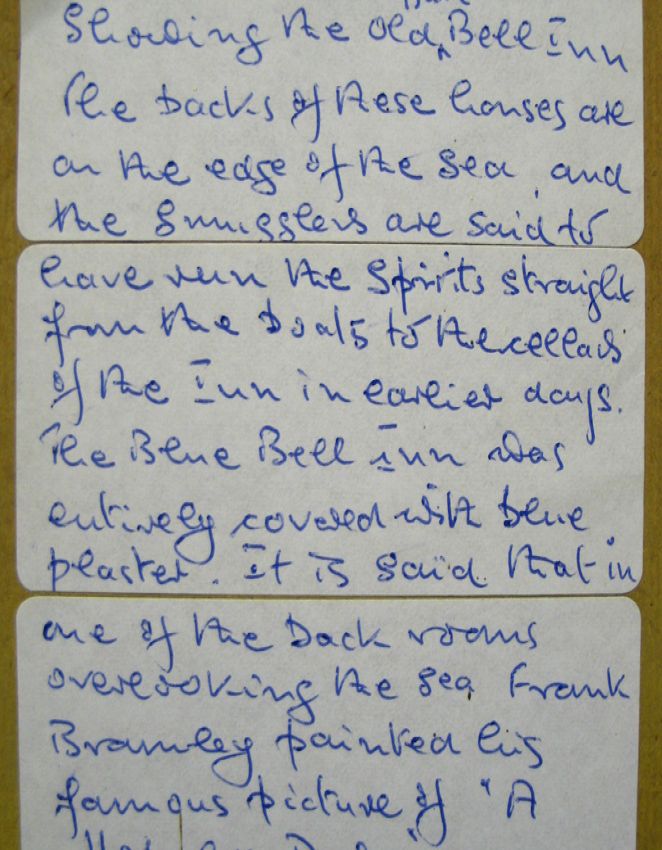 Showing the old Bell Inn
The backs of these houses are
on the edge of the sea, and
the smugglers are said to
have run the spirits straight
from the boats to the cellars
of the Inn in earlier days.
The Blue Bell Inn was
entirely covered with blue
plaster. It is said that in
one of the back rooms
overlooking the sea Frank
Bramley painted his
famous picture of "A